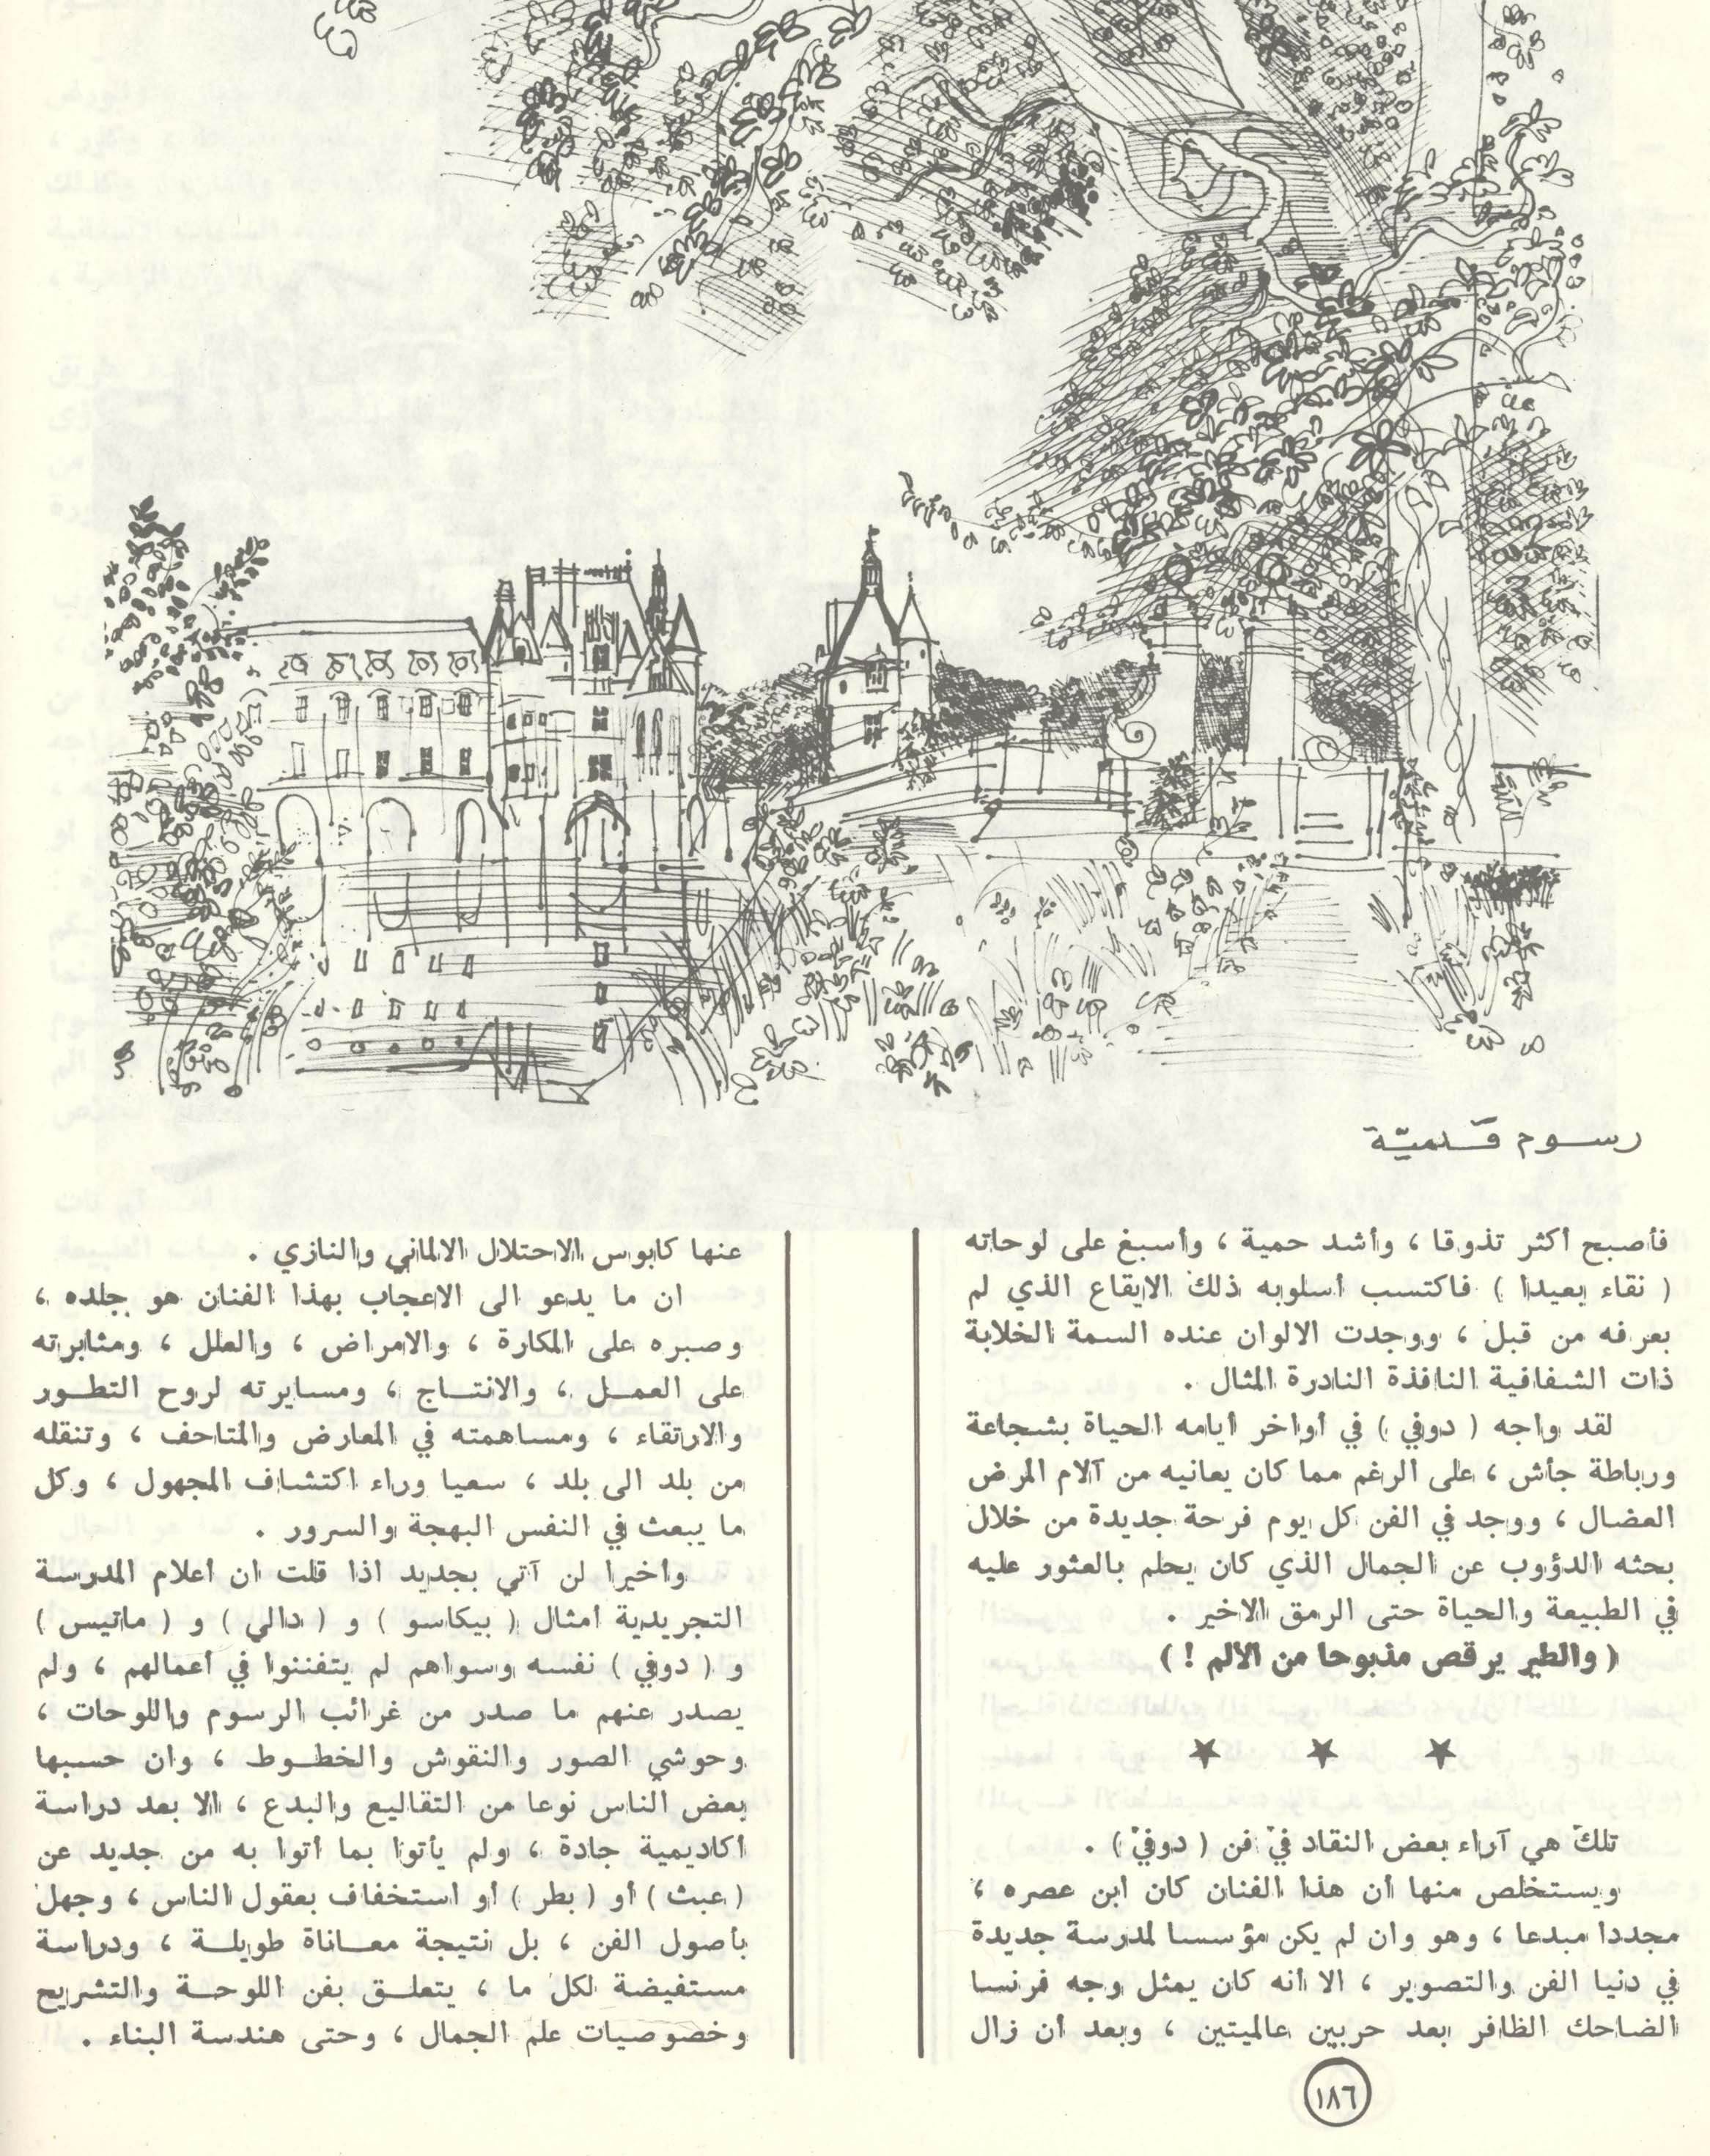 رسوم قلميّة
فأصبح أكثر تذوقا ، وأشد حمية ، وأسبغ على لوحاته
( نقاء بعيدا ) فاكتسب أسلوبه ذلك الايقاع الذي لم
يعرفه من قبل ، ووجدت الالوان عنده السمة الخلابة
ذات الشفافية النافذة النادرة المثال .
لقد واجه ( دوفي ) في أواخر أيامه الحياة بشجاعة
ورباطة جأش ، على الرغم مما كان يعانيه من آلام المرض
العضال ، ووجد في الفن كل يوم فرحة جديدة من خلال
بحثه الدؤوب عن الجمال الذي كان يحلم بالعثور عليه
في الطبيعة والحياة حتى الرمق الاخير .
( والطير يرقص مذبوحا من الألم ! )
★ ★ ★
تلك هي آراء بعض النقاد في فن ( دوفي ) .
ويستخلص منها أن هذا الفنان كان ابن عصره ،
مجددا مبدعا ، وهو وان لم يكن مؤسسا لمدرسة جديدة
في دنيا الفن والتصوير ، الا أنه كان يمثل وجه فرنسا
الضاحك الظافر بعد حربين عالميتين ، وبعد أن زال
عنها كابوس الاحتلال الالماني والنازي .
ان ما يدعو الى الاعجاب بهذا الفنان هو جلده ،
وصبره على المكارة ، والامراض ، والعلل ، ومثابرته
على العمل ، والانتاج ، ومسايرته لروح التطور
والارتقاء ، ومساهمته في المعارض والمتاحف ، وتنقله
من بلد الى بلد ، سعيا وراء اكتشاف المجهول ، وكل
ما يبعث في النفس البهجة والسرور .
وأخيرا لن آتي بجديد اذا قلت ان أعلام المدرسة
التجريدية أمثال ( بيكاسو ) و ( دالي ) و ( ماتيس )
و ( دوفي ) نفسه وسواهم لم يتفننوا في أعمالهم ، ولم
يصدر عنهم ما صدر من غرائب الرسوم واللوحات ،
وحوشي الصور والنقوش والخطوط ، وان حسبها
بعض الناس نوعا من التقاليع والبدع ، الا بعد دراسة
أكاديمية جادة ، ولم يأتوا بما أتوا به من جديد عن
( عبث ) أو ( بطر ) أو استخفاف بعقول الناس ، وجهل
بأصول الفن ، بل نتيجة معاناة طويلة ، ودراسة
مستفيضة لكل ما ، يتعلق بفن اللوحة والتشريح
وخصوصيات علم الجمال ، وحتى هندسة البناء .
١٨٦